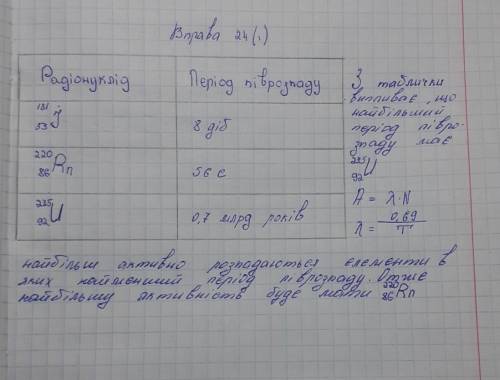 Вправа 24(1)
Радіонуклід Період піврозпаду
¹³¹₅₃I 8 діб
²²⁰₈₆Rn 56 с
²³⁵₉₂U 0,7 млрд років
З таблички
випливає, що
найбільший
період півро-
зпаду має
²³⁵₉₂U
A = λ·N
λ = 0,69/T
найбільш активно розпадаються елементи в
яких найменший період піврозпаду. Отже
найбільшу активність буде мати ²²⁰₈₆Rn